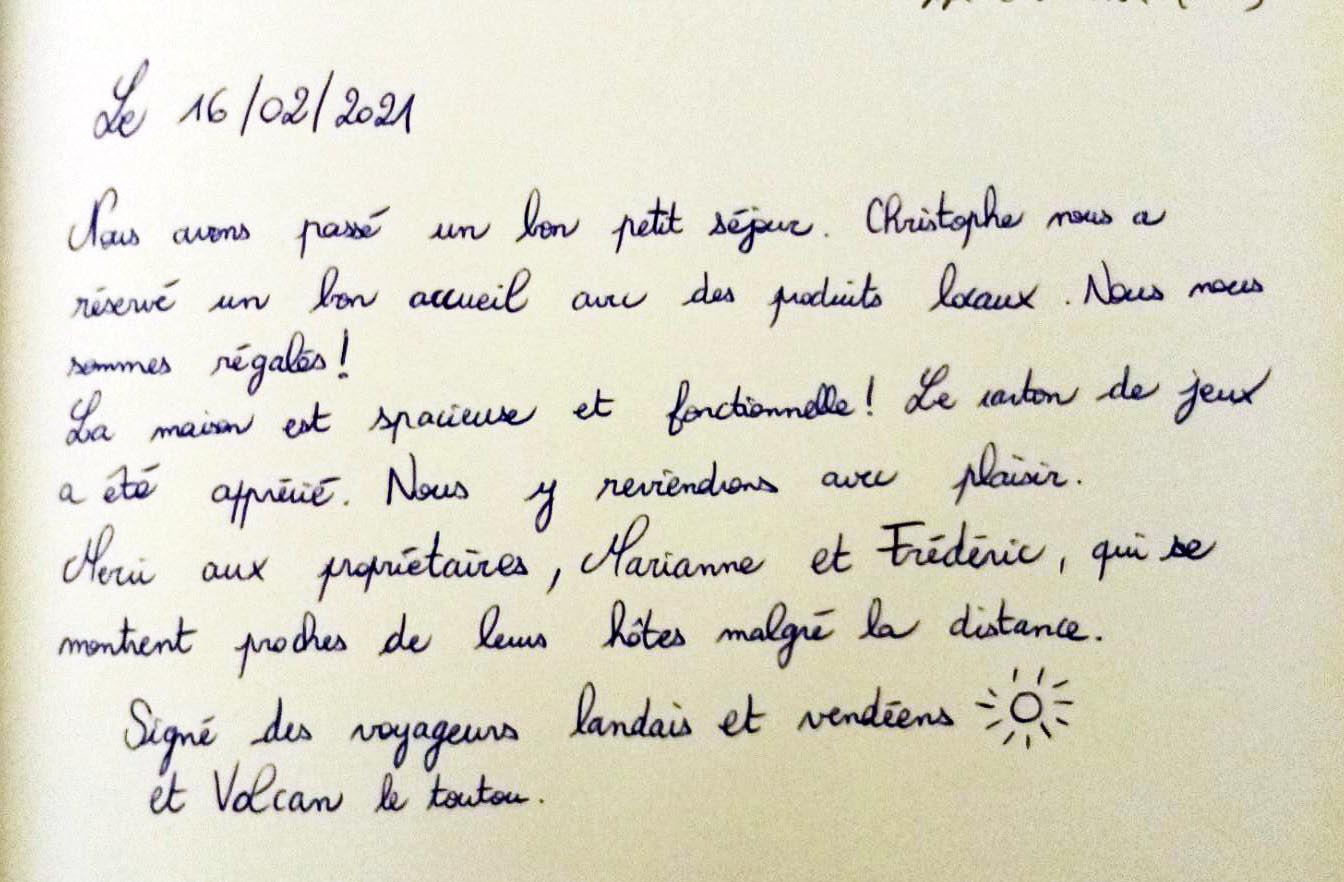 Le 16/02/2021
Nous avons passé un bon petit séjour. Christophe nous a
réservé un bon accueil avec des produits locaux. Nous nous
sommes régalés!
La maison est spacieuse et fonctionnelle! Le carton de jeux
a été apprécié. Nous y reviendrons avec plaisir.
Merci aux propriétaires, Marianne et Frédéric, qui se
montrent proches de leurs hôtes malgré la distance.
Signé des voyageurs landais et vendéens
et Volcan le toutou.